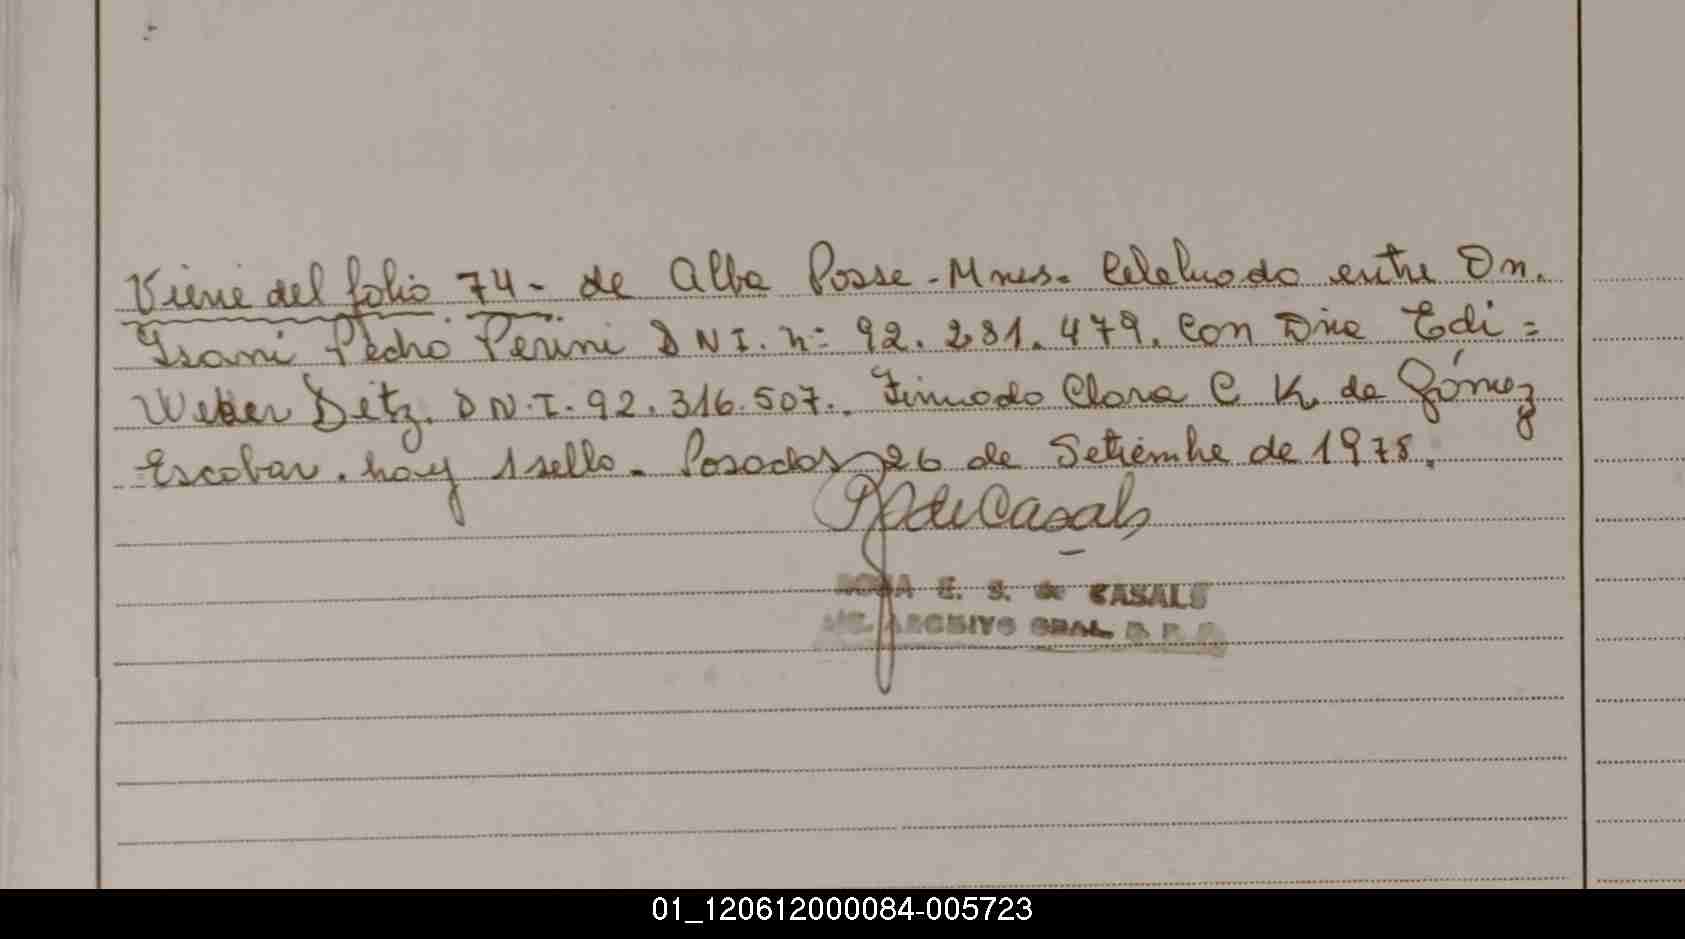 Viene del folio 74 - de Alba Posse - Mnes. Celebrado entre Dn.
Isani Pedro Perini D N I. nº 92. 281. 479. Con Dña Edi =
Weber Detz. D N. I. 92. 316. 507. Firmado Clara C K. de Gómez
Escobar. hay 1 sello. Posadas 26 de Setiembre de 1978.
R S de Casals
ROSA E. S. de CASALS
ARCHIVO GRAL. D. R. P.
01_120612000084-005723